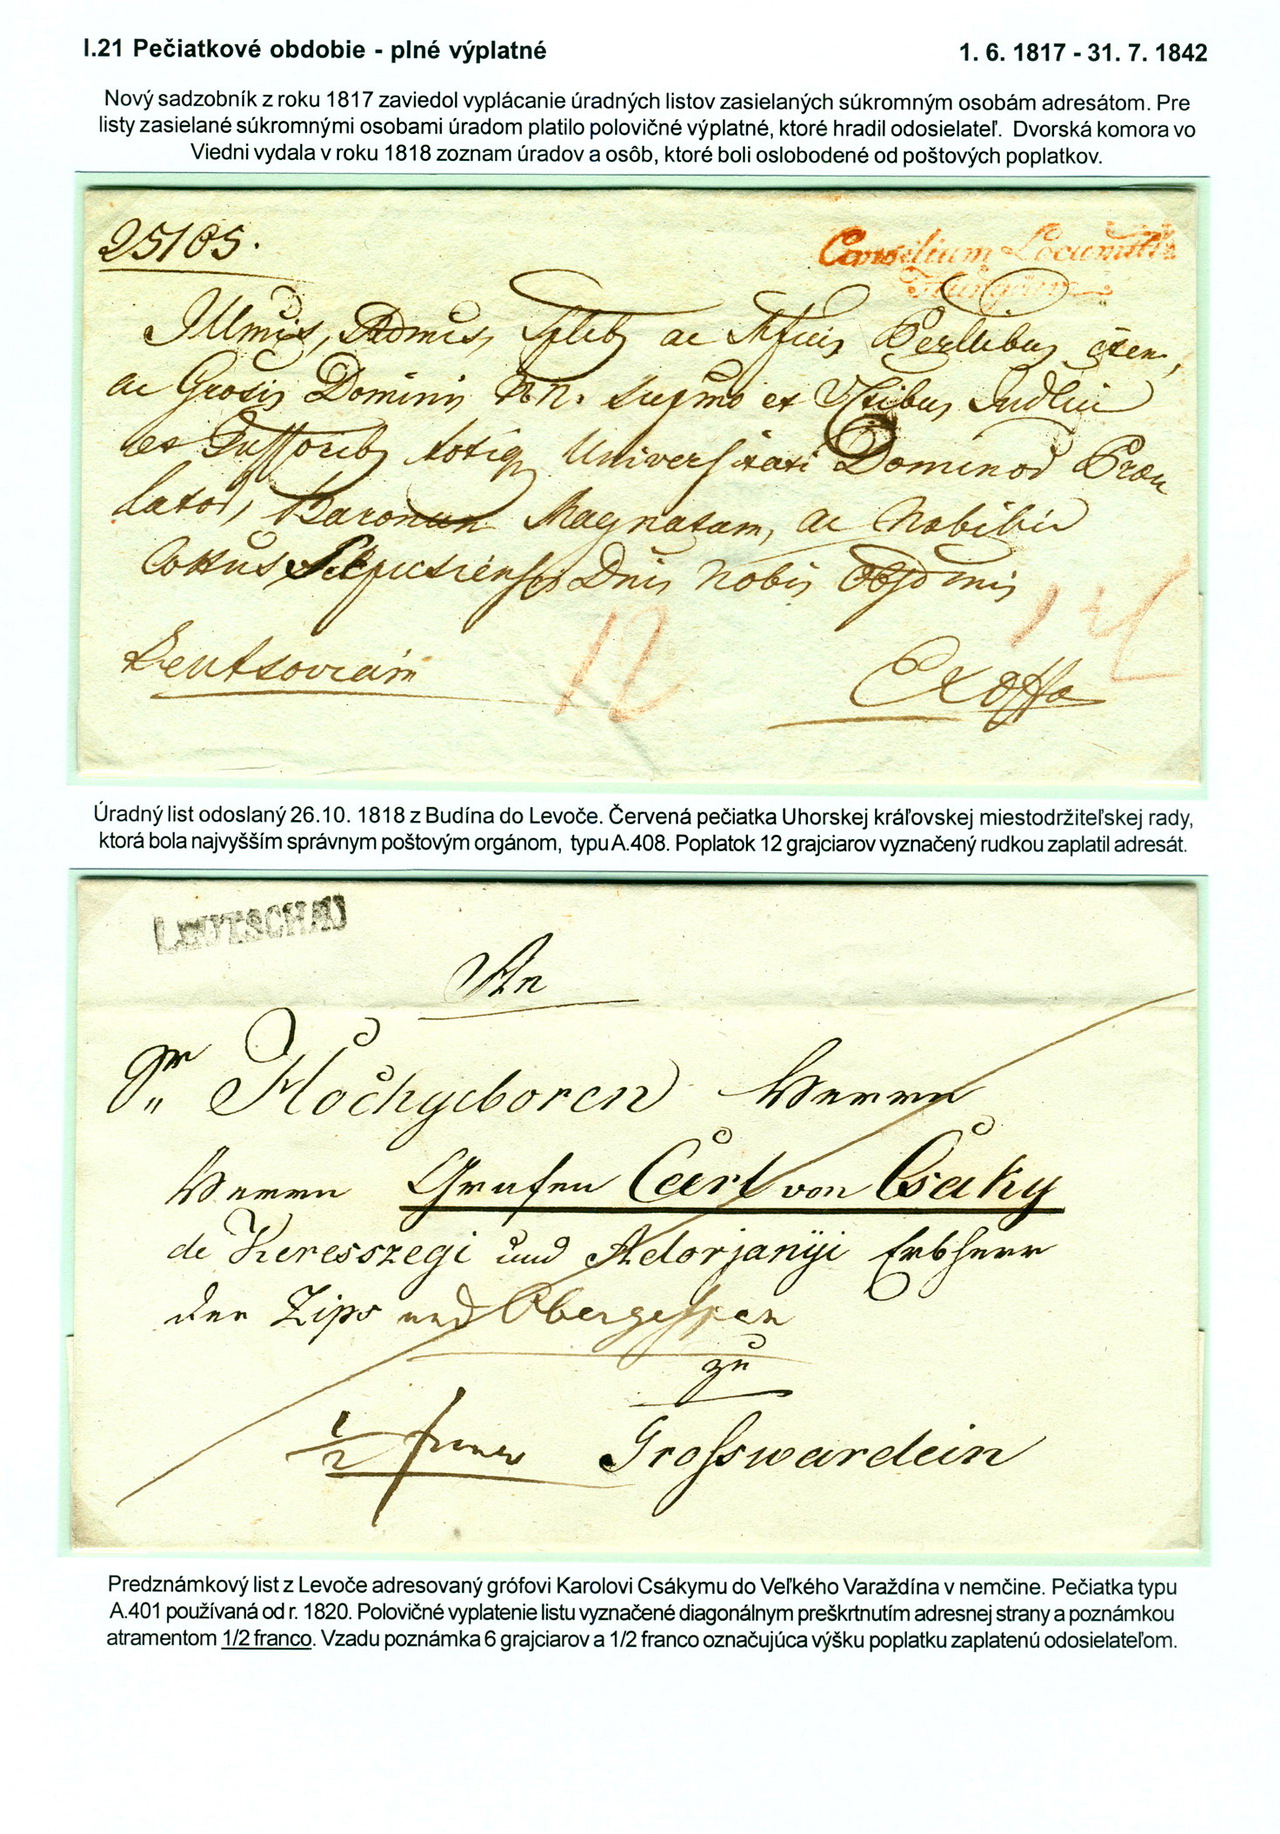 I.21 Pečiatkové obdobie - plné výplatné 1. 6. 1817 - 31. 7. 1842
Nový sadzobník z roku 1817 zaviedol vyplácanie úradných listov zasielaných súkromným osobám adresátom. Pre
listy zasielané súkromnými osobami úradom platilo polovičné výplatné, ktoré hradil odosielateľ. Dvorská komora vo
Viedni vydala v roku 1818 zoznam úradov a osôb, ktoré boli oslobodené od poštových poplatkov.
25105.
Consilium Locumtle
ac Dominis N.N. et
et Universitati Dominor Præ
lator, Baronum Magnatum, ac Nobiliu
Scepusiensis Dnis Nobis
Leutsoviam 12 Ex offo
Úradný list odoslaný 26.10. 1818 z Budína do Levoče. Červená pečiatka Uhorskej kráľovskej miestodržiteľskej rady,
ktorá bola najvyšším správnym poštovým orgánom, typu A.408. Poplatok 12 grajciarov vyznačený rudkou zaplatil adresát.
LEUTSCHAU
An
Sr Hochgeboren Herrn
Herrn Grafen Carl von Csáky
de Keresszegi und Adorjányi Erbherr
der Zips und Obergespan
zu
1/2 franco Grosswardein
Predznámkový list z Levoče adresovaný grófovi Karolovi Csákymu do Veľkého Varaždína v nemčine. Pečiatka typu
A.401 používaná od r. 1820. Polovičné vyplatenie listu vyznačené diagonálnym preškrtnutím adresnej strany a poznámkou
atramentom 1/2 franco. Vzadu poznámka 6 grajciarov a 1/2 franco označujúca výšku poplatku zaplatenú odosielateľom.